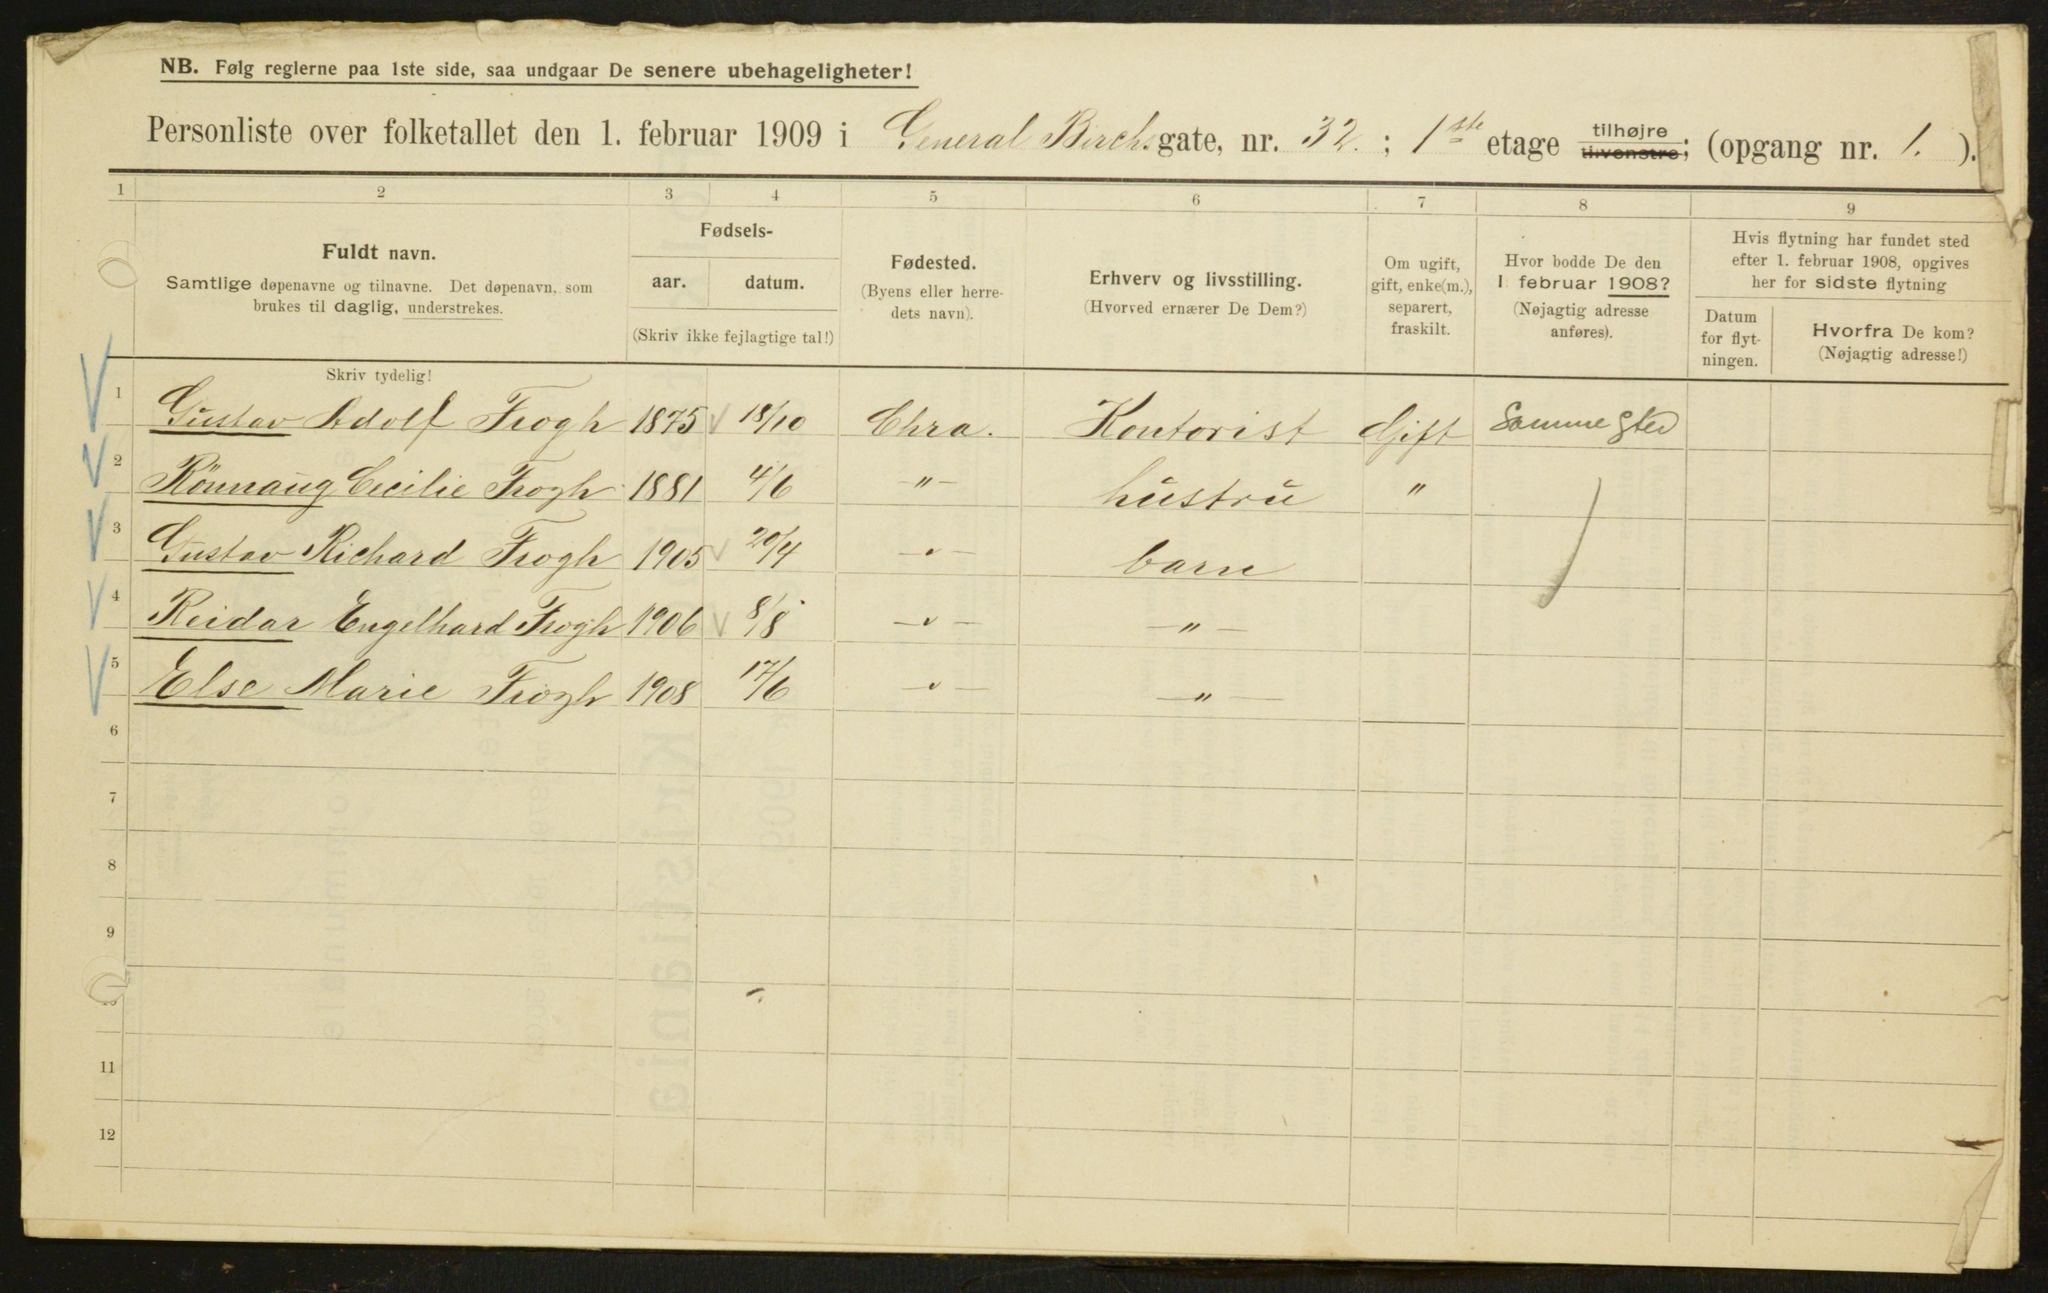 NB. Følg reglerne paa 1ste side, saa undgaar De senere ubehageligheter!
Personliste over folketallet den 1. februar 1909 i General Birchsgate, nr. 32. ; 1ste etage tilhøjre tilvenstre; (opgang nr. 1. ).
1 2 3 4 5 6 7 8 9
Fuldt navn.
Samtlige døpenavne og tilnavne. Det døpenavn, som
brukes til daglig, understrekes.
Fødsels-
aar. datum.
(Skriv ikke fejlagtige tal!)
Fødested.
(Byens eller herre-
dets navn).
Erhverv og livsstilling.
(Hvorved ernærer De Dem?)
Om ugift,
gift, enke(m.),
separert,
fraskilt.
Hvor bodde De den
1. februar 1908?
(Nøjagtig adresse
anføres).
Hvis flytning har fundet sted
efter 1. februar 1908, opgives
her for sidste flytning
Datum
for flyt-
ningen.
Hvorfra De kom?
(Nøjagtig adresse!)
Skriv tydelig!
1 Gustav Adolf Frogh 1875 18/10 Chra. Kontorist Gift Sammested
2 Rönnaug Cecilie Frogh 1881 4/6 -"- hustru "
3 Gustav Richard Frogh 1905 20/4 -"- barn
4 Reidar Engelhard Frogh 1906 8/8 -"- -"-
5 Else Marie Frogh 1908 17/6 -"- -"-
6
7
8
9
10
11
12